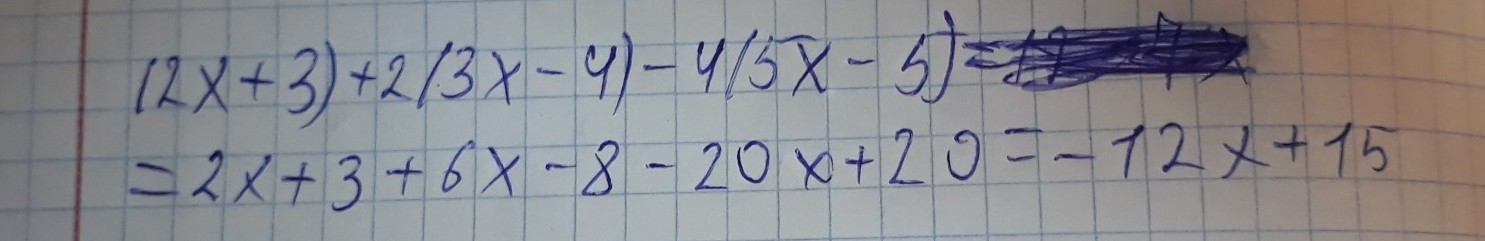 (2x+3)+2(3x-4)-4(5x-5)=
=2x+3+6x-8-20x+20=-12x+15